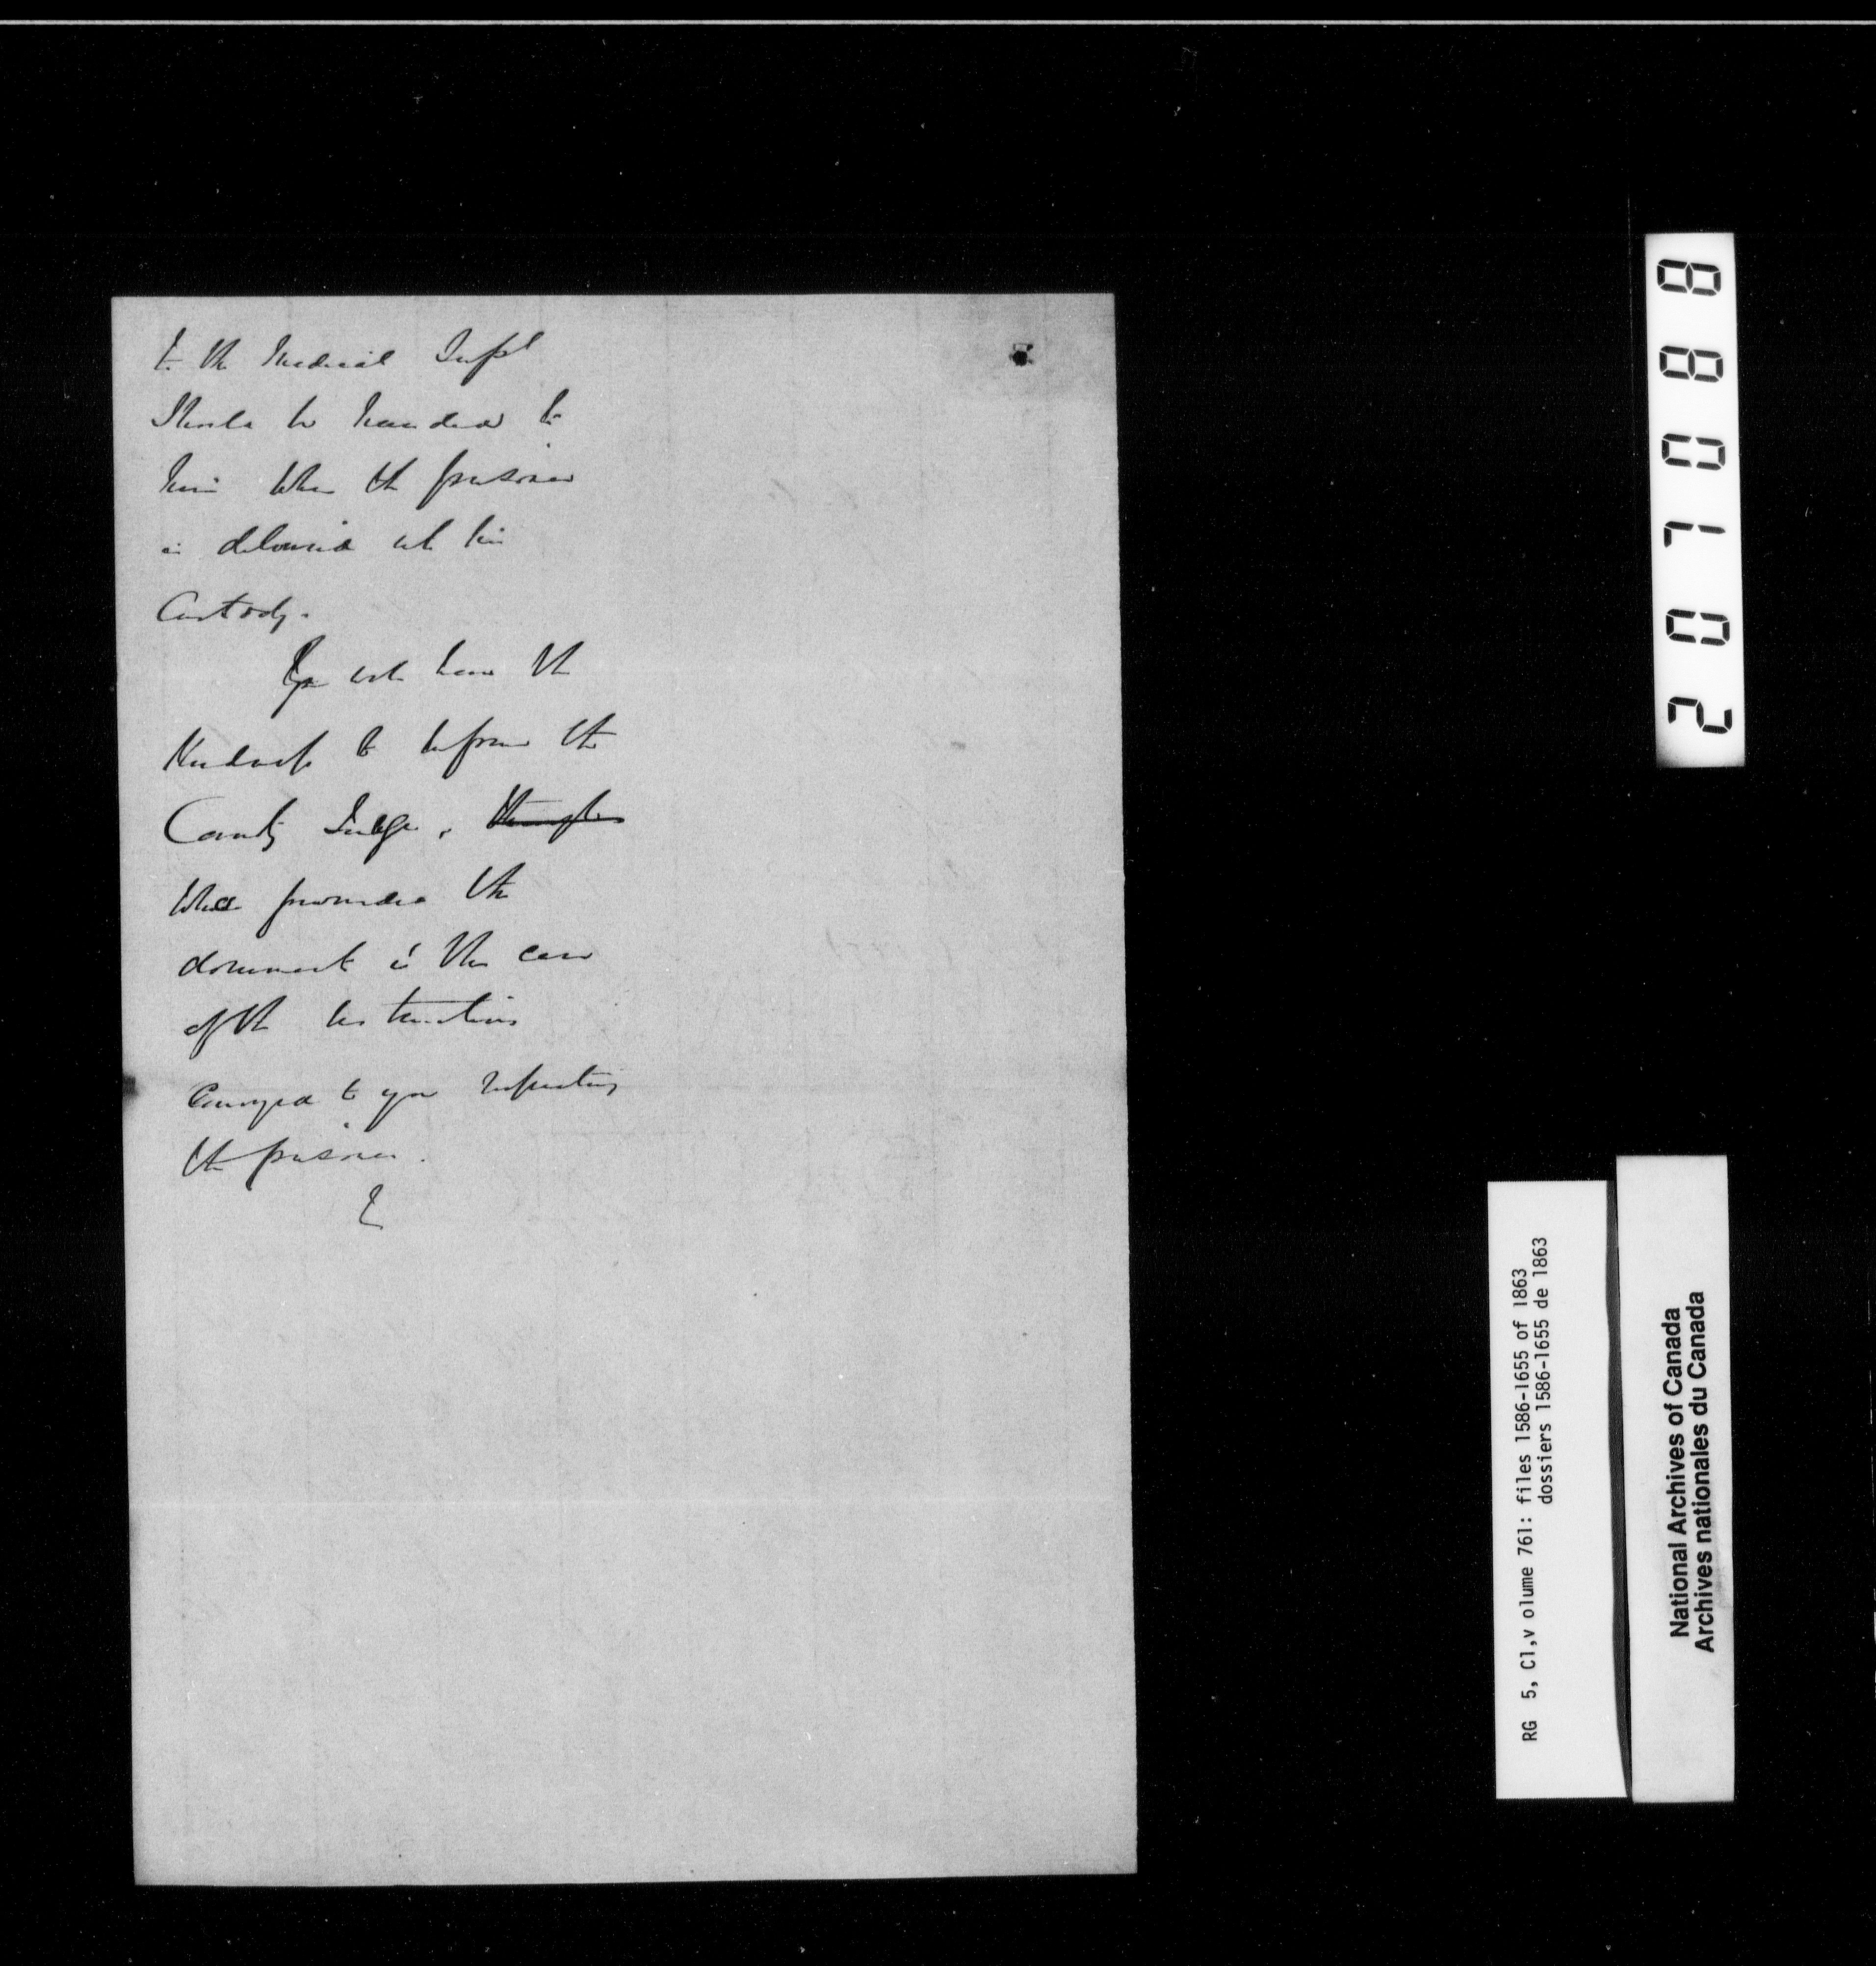 to the Medical Supt
Should be handed to
him when the prisoner
is delivered into his
Custody.
You will have the
Kindness to inform the
County Judge,
who the
document in this case
of the instructions
Conveyed to you respecting
the prisoner.
207088
RG 5, C1,v olume 761: files 1586-1655 of 1863
dossiers 1586-1655 de 1863
National Archives of Canada
Archives nationales du Canada